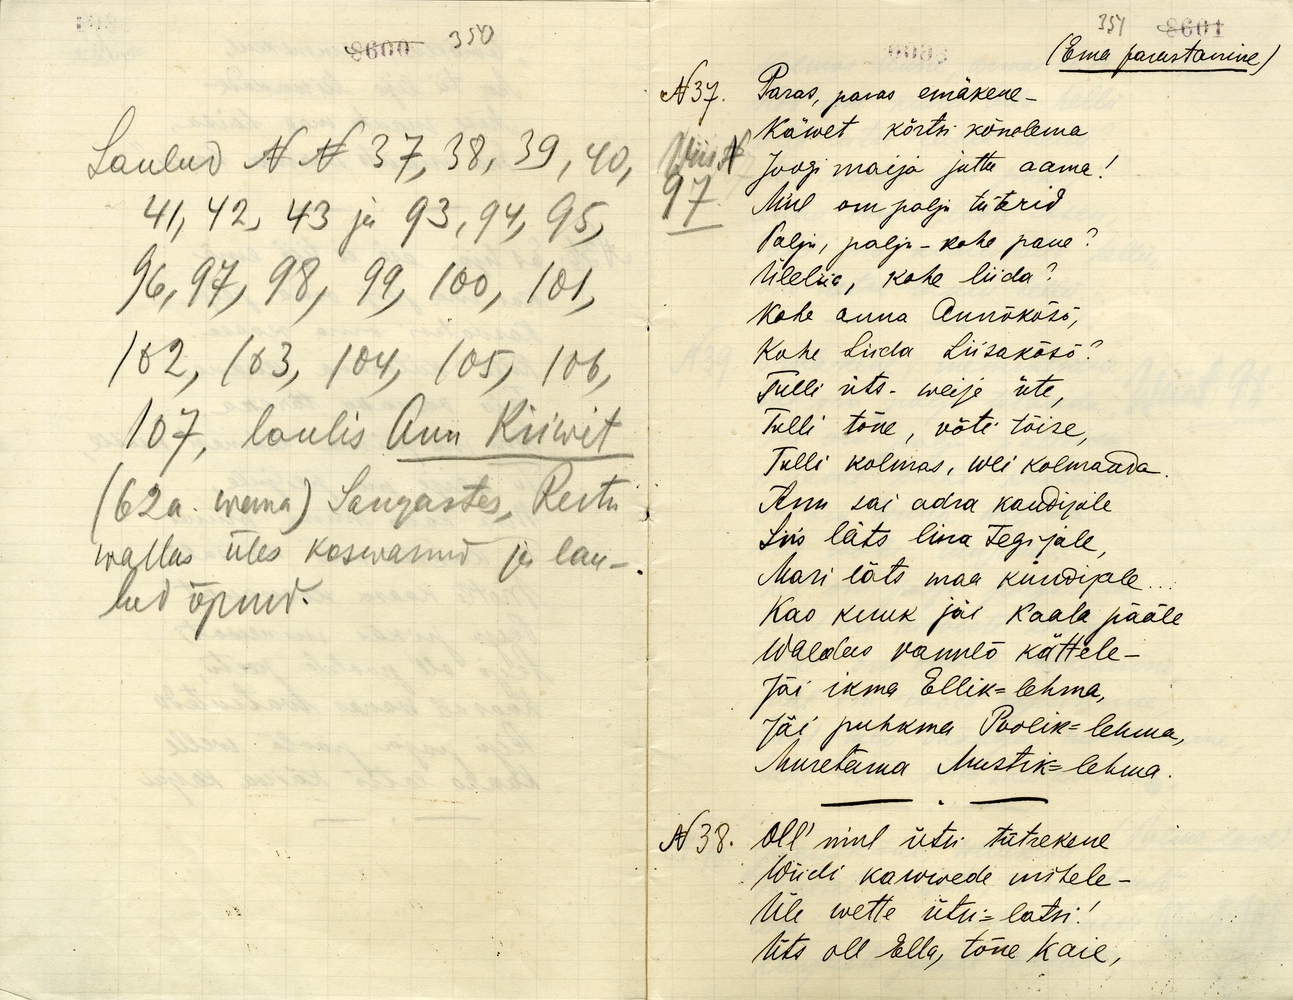 8600 350
Laulud N N 37, 38, 39, 40,
41, 42, 43 ja 93, 94, 95,
96, 97, 98, 99, 100, 101,
102, 103, 104, 105, 106,
107, laulis Ann Kiiwit
(62 a. wana) Sangastes, Restu
wallas üles kaswanud ja lau-
lud õpnud.
351 8601
(Ema parastamine)
N 37. Paras, paras emäkene-
Käwet kõrtsi kõnolema
Viis N 97 Joogi maija juttu aama!
Miul om palju tüterid
Palju, palju - kohe pane?
Üleliia, kohe liida?
Kohe anna Annõkõsõ,
Kohe Liida Liisakõsõ?
Tulli üts - weije üte,
Tulli tõne, võti tõise,
Tulli kolmas, wei kolmanda.
Ann sai adra kandijale
Liis läts lina tegijale,
Mari läts maa kündijale...
Kao kuuk jäi kaala pääle
Waldus vannlõ kättele-
Jäi ikma Ellik=lehma,
Jäi puhkma Poolik=lehma,
Muretama Mustik=lehma.
N 38. Oll' miul ütsi tütrekene
Wiidi kawwede mihele-
Üle wette ütsi=latsi!
Üts oll Ella, tõne Kaie,